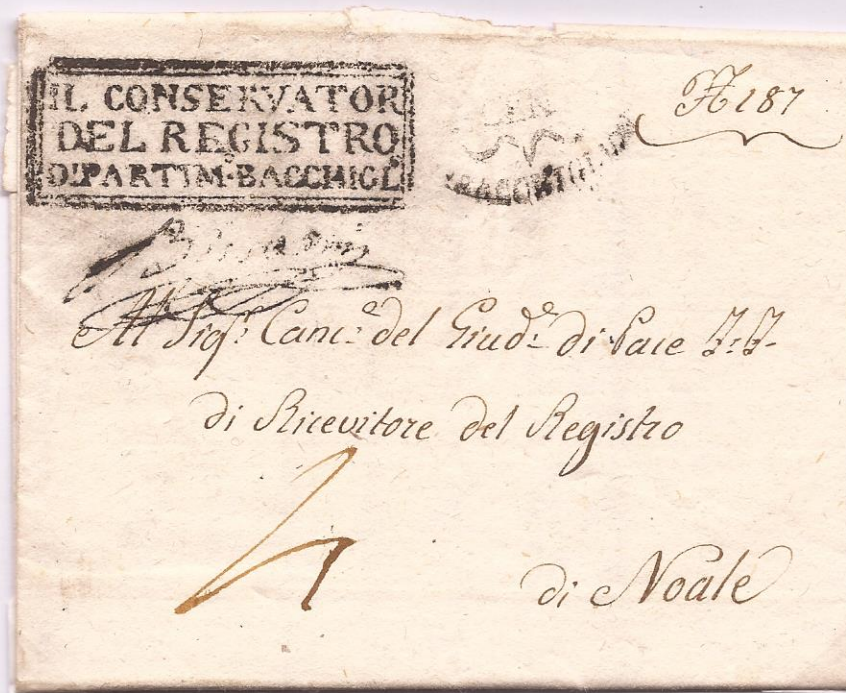 IL CONSERVATOR
DEL REGISTRO
DIPARTIM.º BACCHIGL.
N 187
Al Sig.r Canc.e del Giud.e di Pace F.F.
di Ricevitore del Registro
di Noale